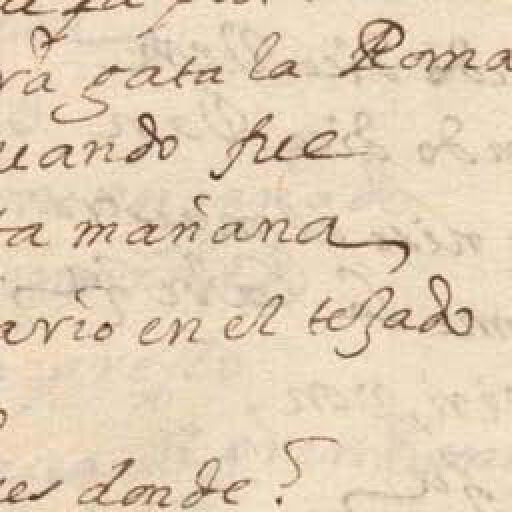 rã gata la Roma
uando fue
ta mañana
ario en el tejado
es donde?